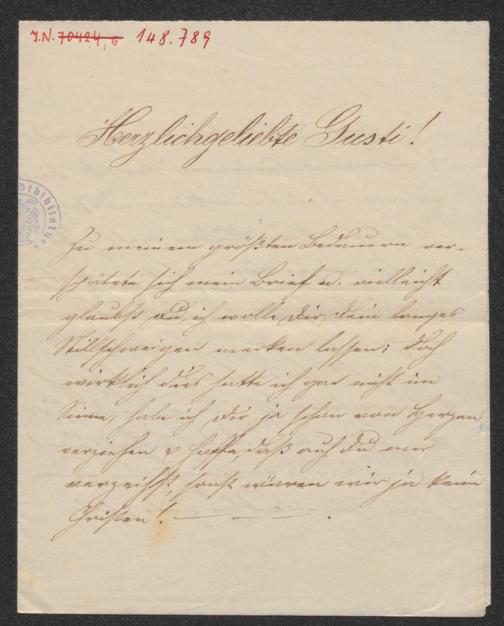 J.N. 70424/6 148.789
Herzlichgeliebte Gusti!
Zu meinem größten Bedauern ver-
spätete sich mein Brief u. vielleicht
glaubst du ich wolle Dir Dein langes
Stillschweigen merken lassen; doch
wirklich dies hatte ich gar nicht im
Sinne; habe ich Dir ja schon von Herzen
verziehen & hoffe daß auch du mir
verzeihst, sonst wären wir ja keine
Christen!